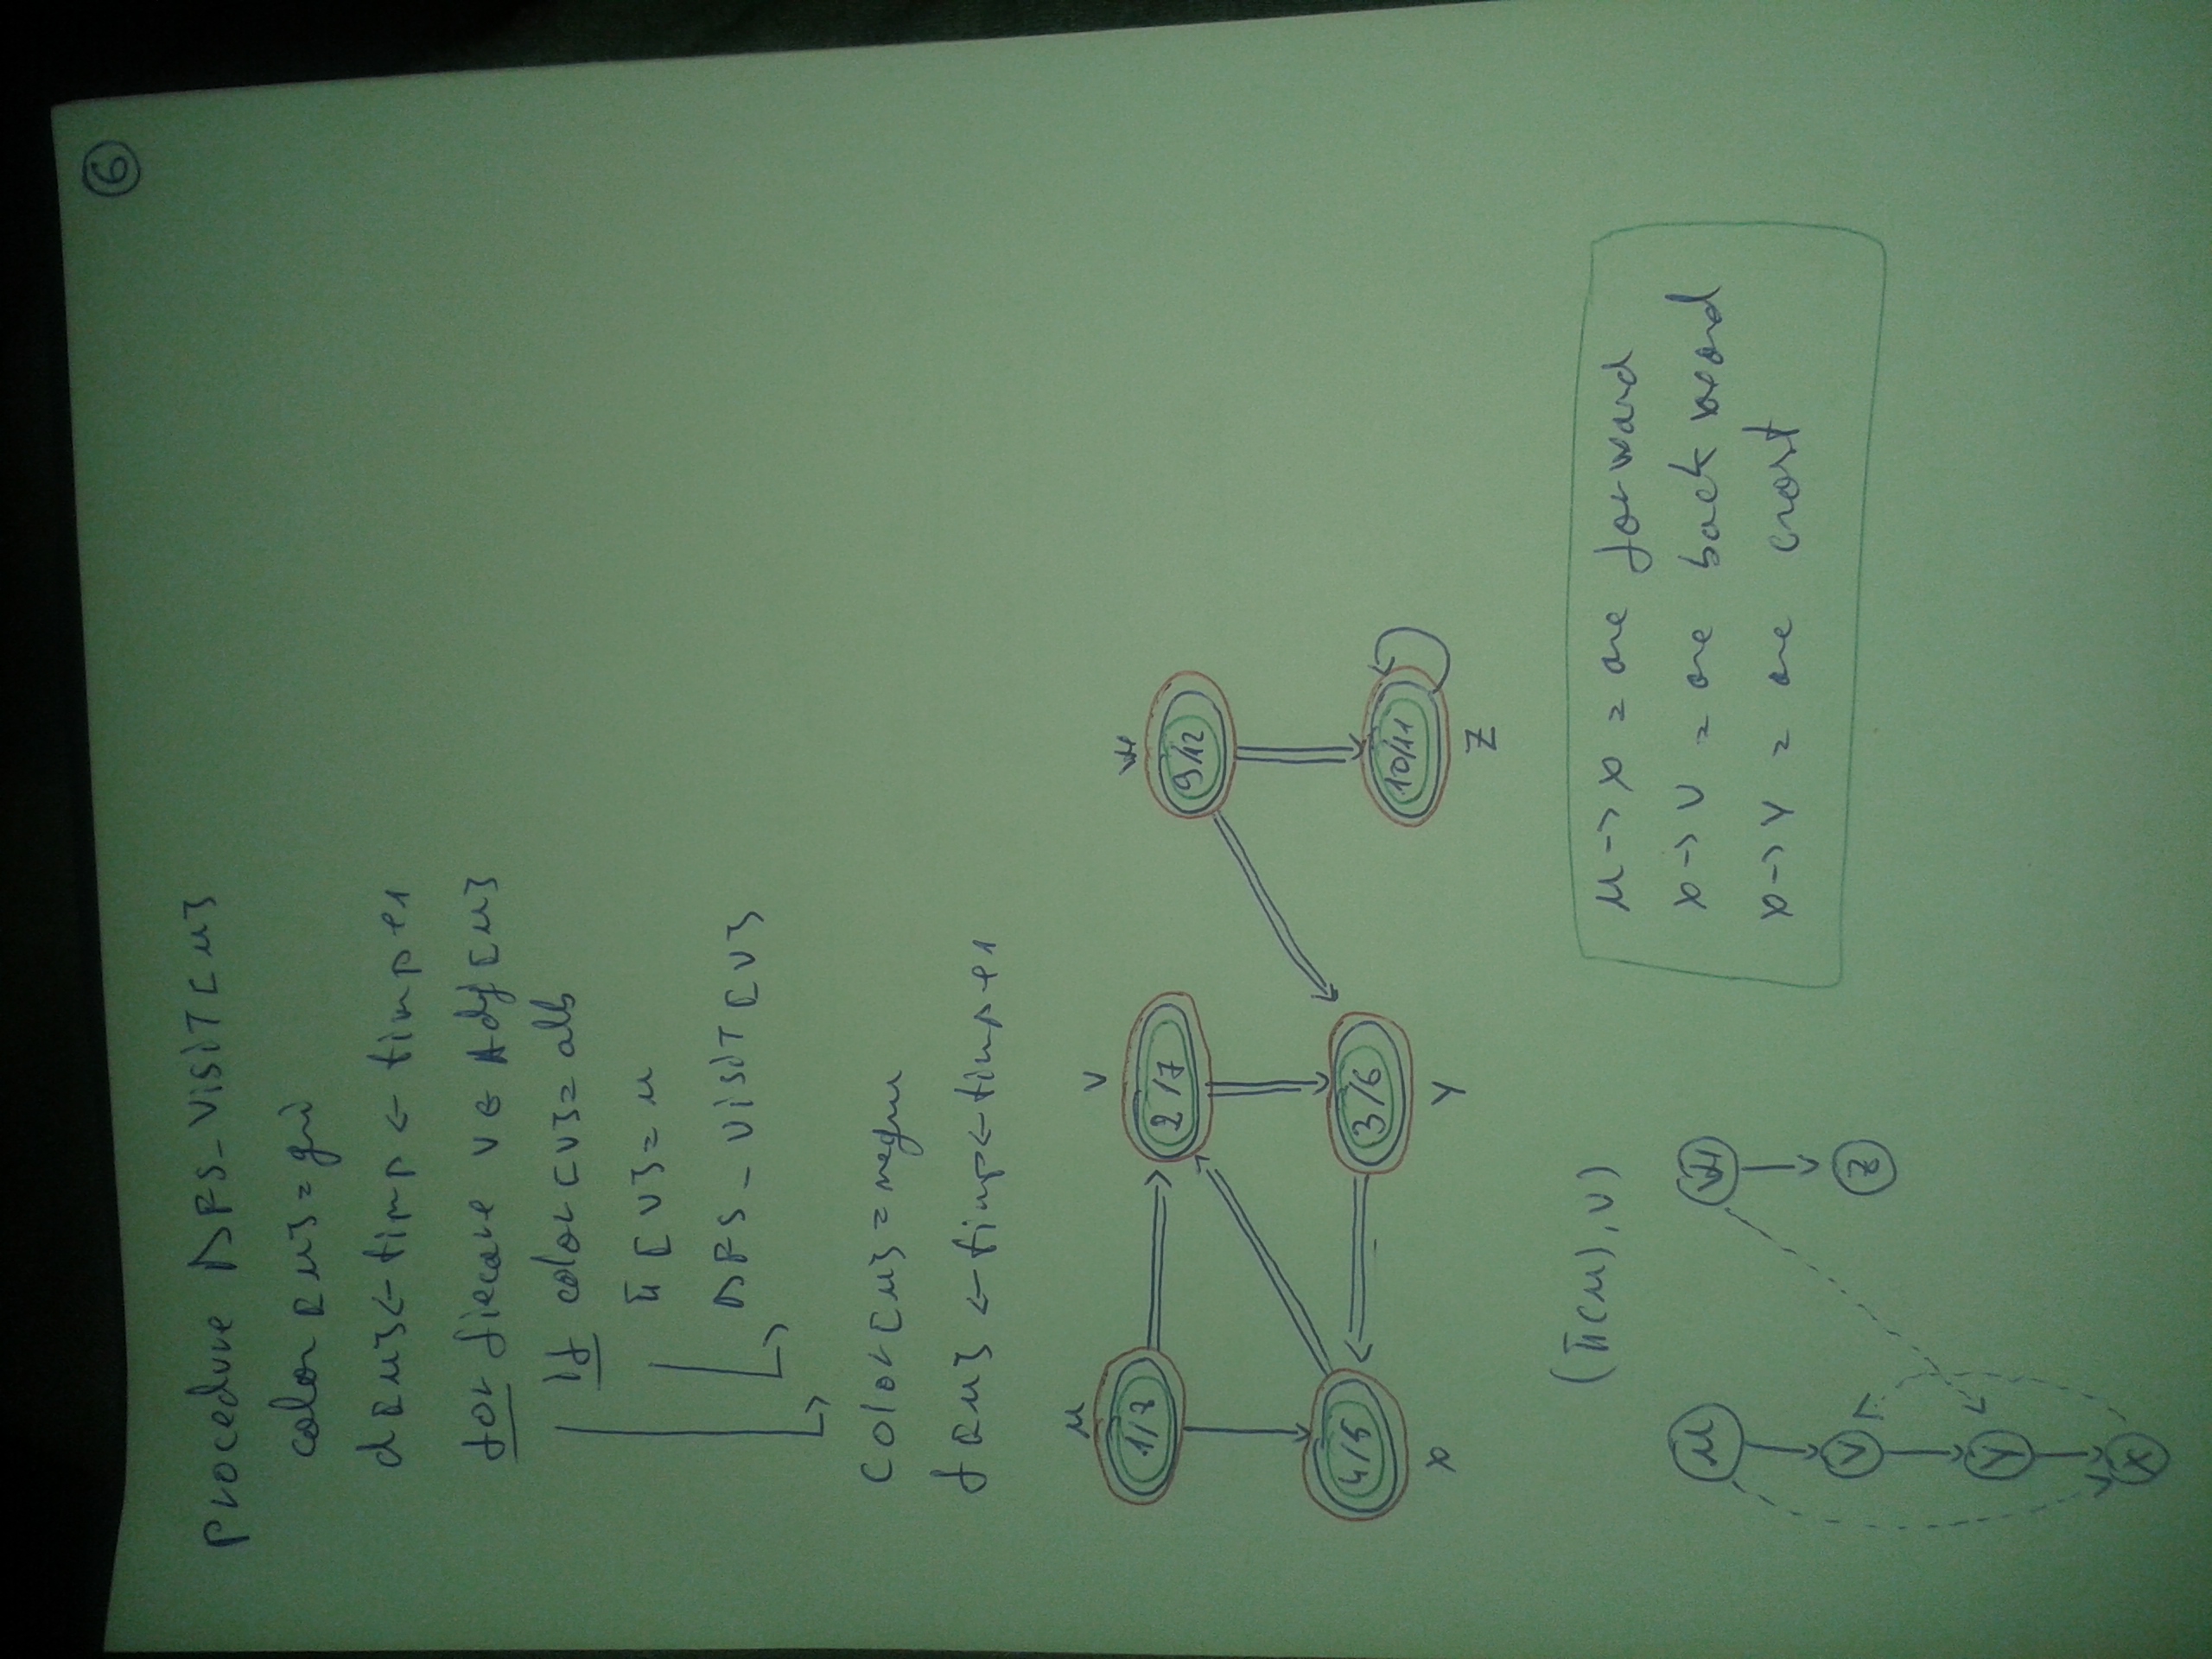 6
Procedure DFS-VISIT[u]
color[u]=gri
d[u]<-timp<-timp+1
for fiecare v∈Adj[u]
If color[v]=alb
π[v]=u
DFS-VISIT[v]
color[u]=negru
f[u]<-timp<-timp+1
u v w
1/2 2/7 9/12
4/5 3/6 10/11
x y z
(π(u),v)
u->x = arc forward
x->v = arc backward
x->y = arc crost
u w
v z
y
x